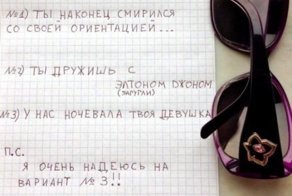 №1) ТЫ НАКОНЕЦ СМИРИЛСЯ
СО СВОЕЙ ОРИЕНТАЦИЕЙ...
№2) ТЫ ДРУЖИШЬ С
ЭЛТОНОМ ДЖОНОМ
(ЗАГУГЛИ)
№3) У НАС НОЧЕВАЛА ТВОЯ ДЕВУШКА
П.С.
Я ОЧЕНЬ НАДЕЮСЬ НА
ВАРИАНТ №3!!